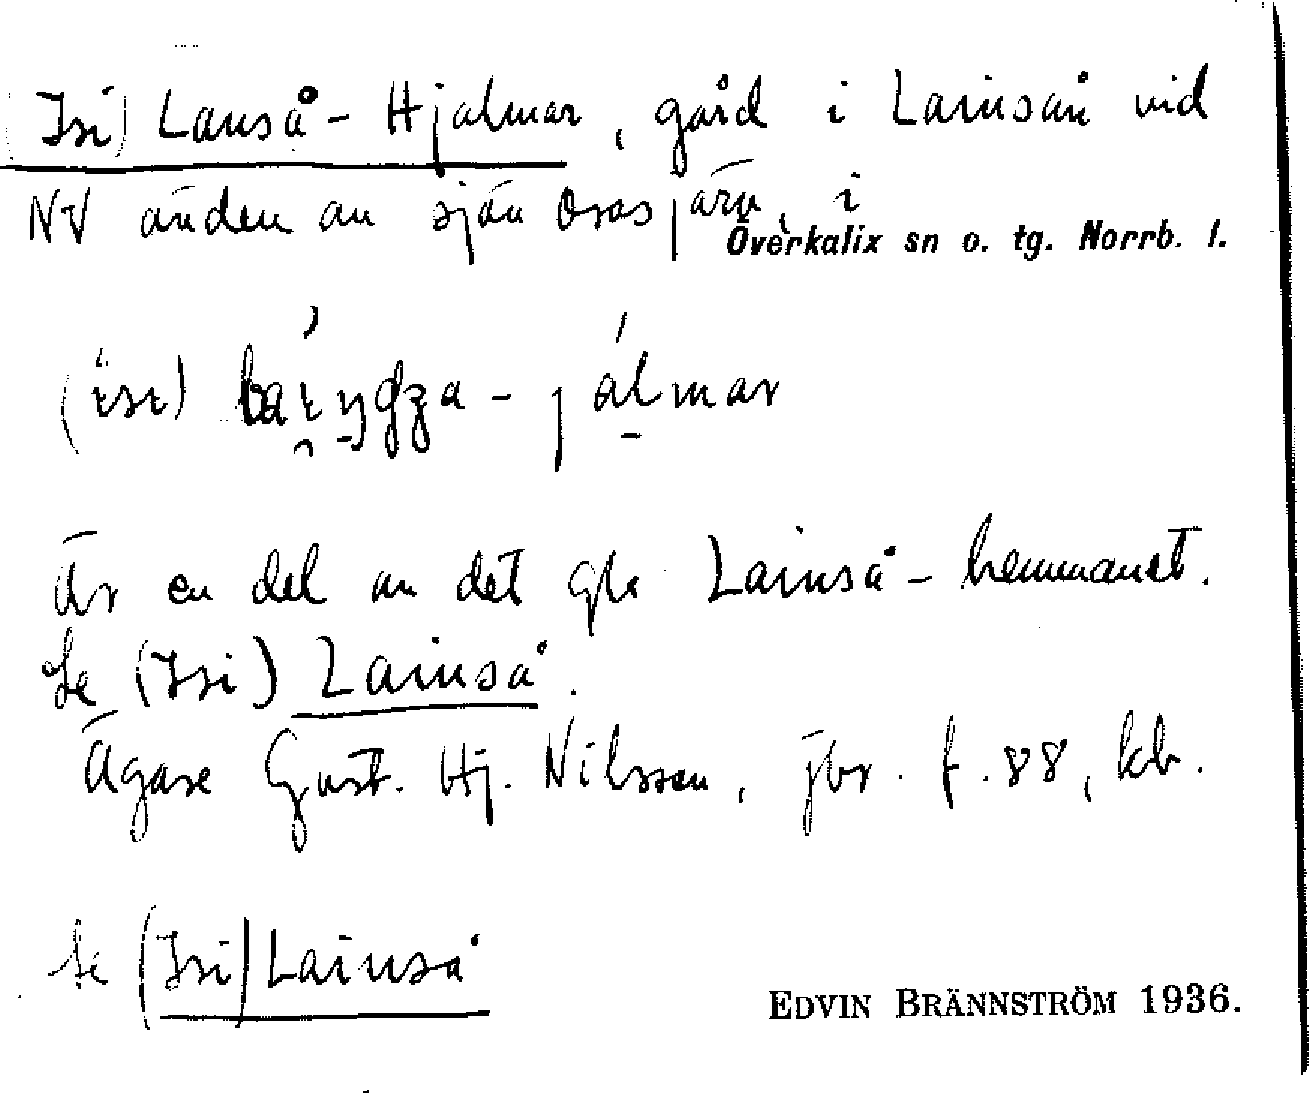 (Isi) Lanså-Hjalmar, gård i Lainså vid
NV änden av sjön Orasjärv, i
Överkalix sn o. tg. Norrb. l.
Är en del av det gla Lainså-hemmanet.
Se (Isi) Lainså.
Ägare Gust. Hj. Nilsson, jbr. f. 88, kb.
Se (Isi) Lainså
EDVIN BRÄNNSTRÖM 1936.